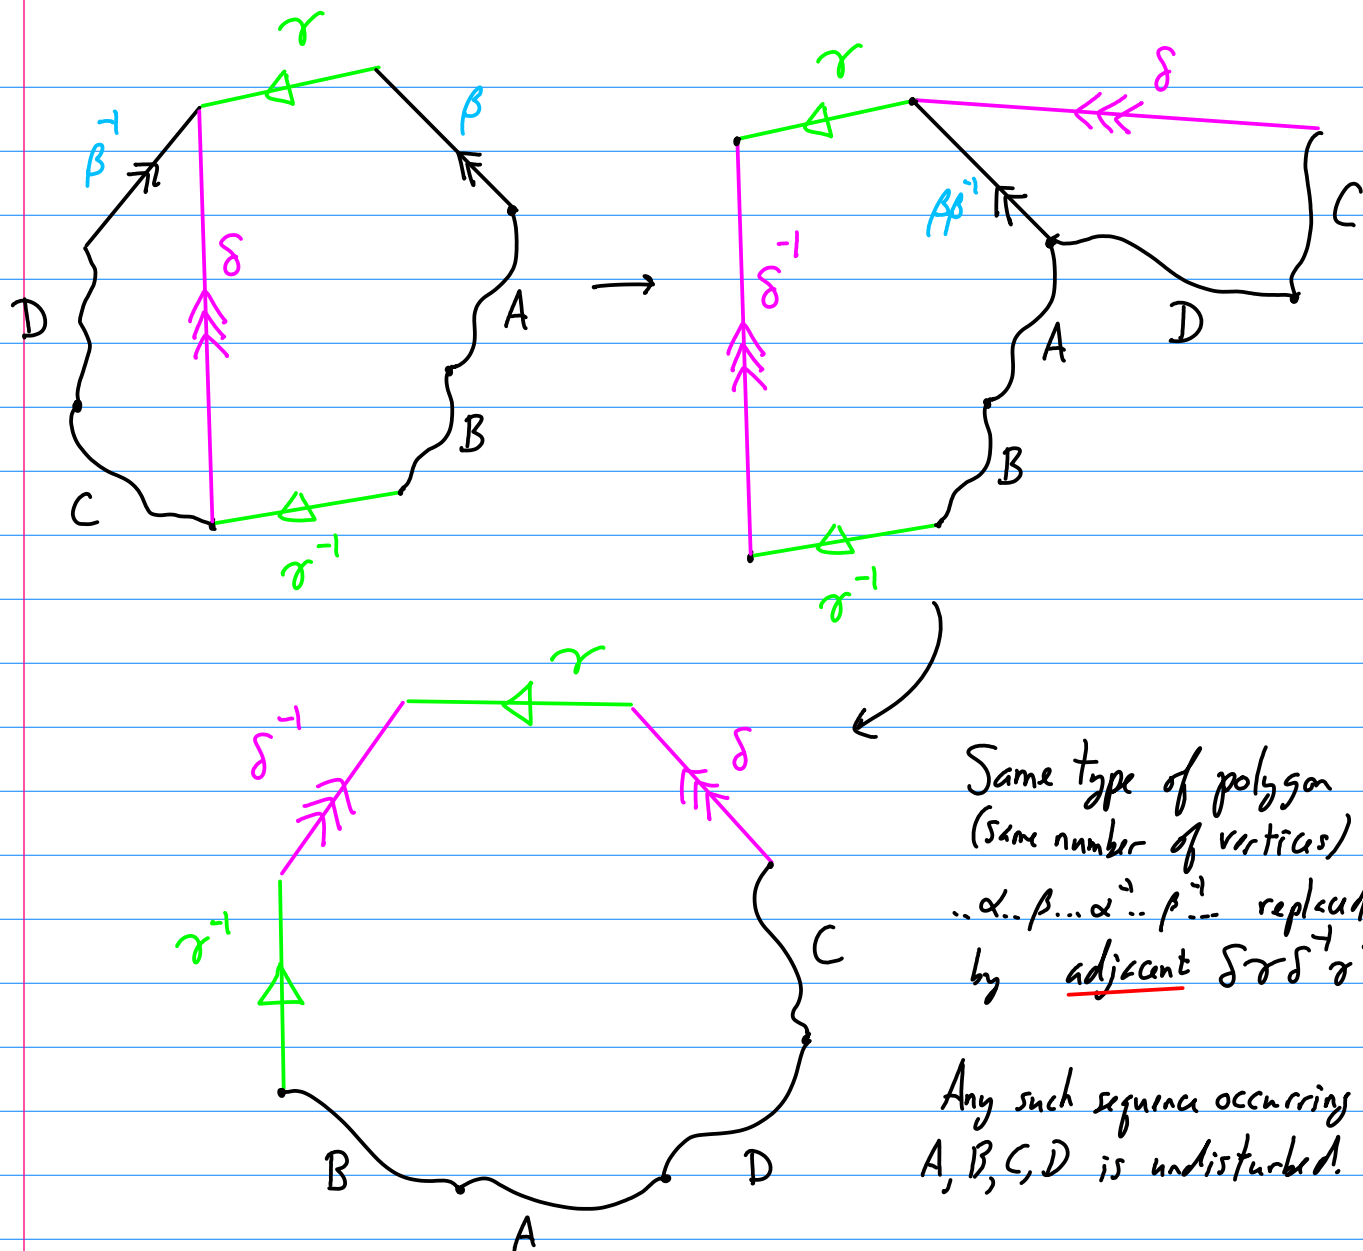 γ
β⁻¹
β
δ
D
A
B
C
γ⁻¹
γ
δ
C
ββ⁻¹
δ⁻¹
A
D
B
γ⁻¹
γ
δ⁻¹
δ
γ⁻¹
C
B
D
A
Same type of polygon
(same number of vertices)
..α..β...α⁻¹..β⁻¹... replaced
by adjacent δγδ⁻¹γ⁻
Any such sequence occurring
A, B, C, D is undisturbed.